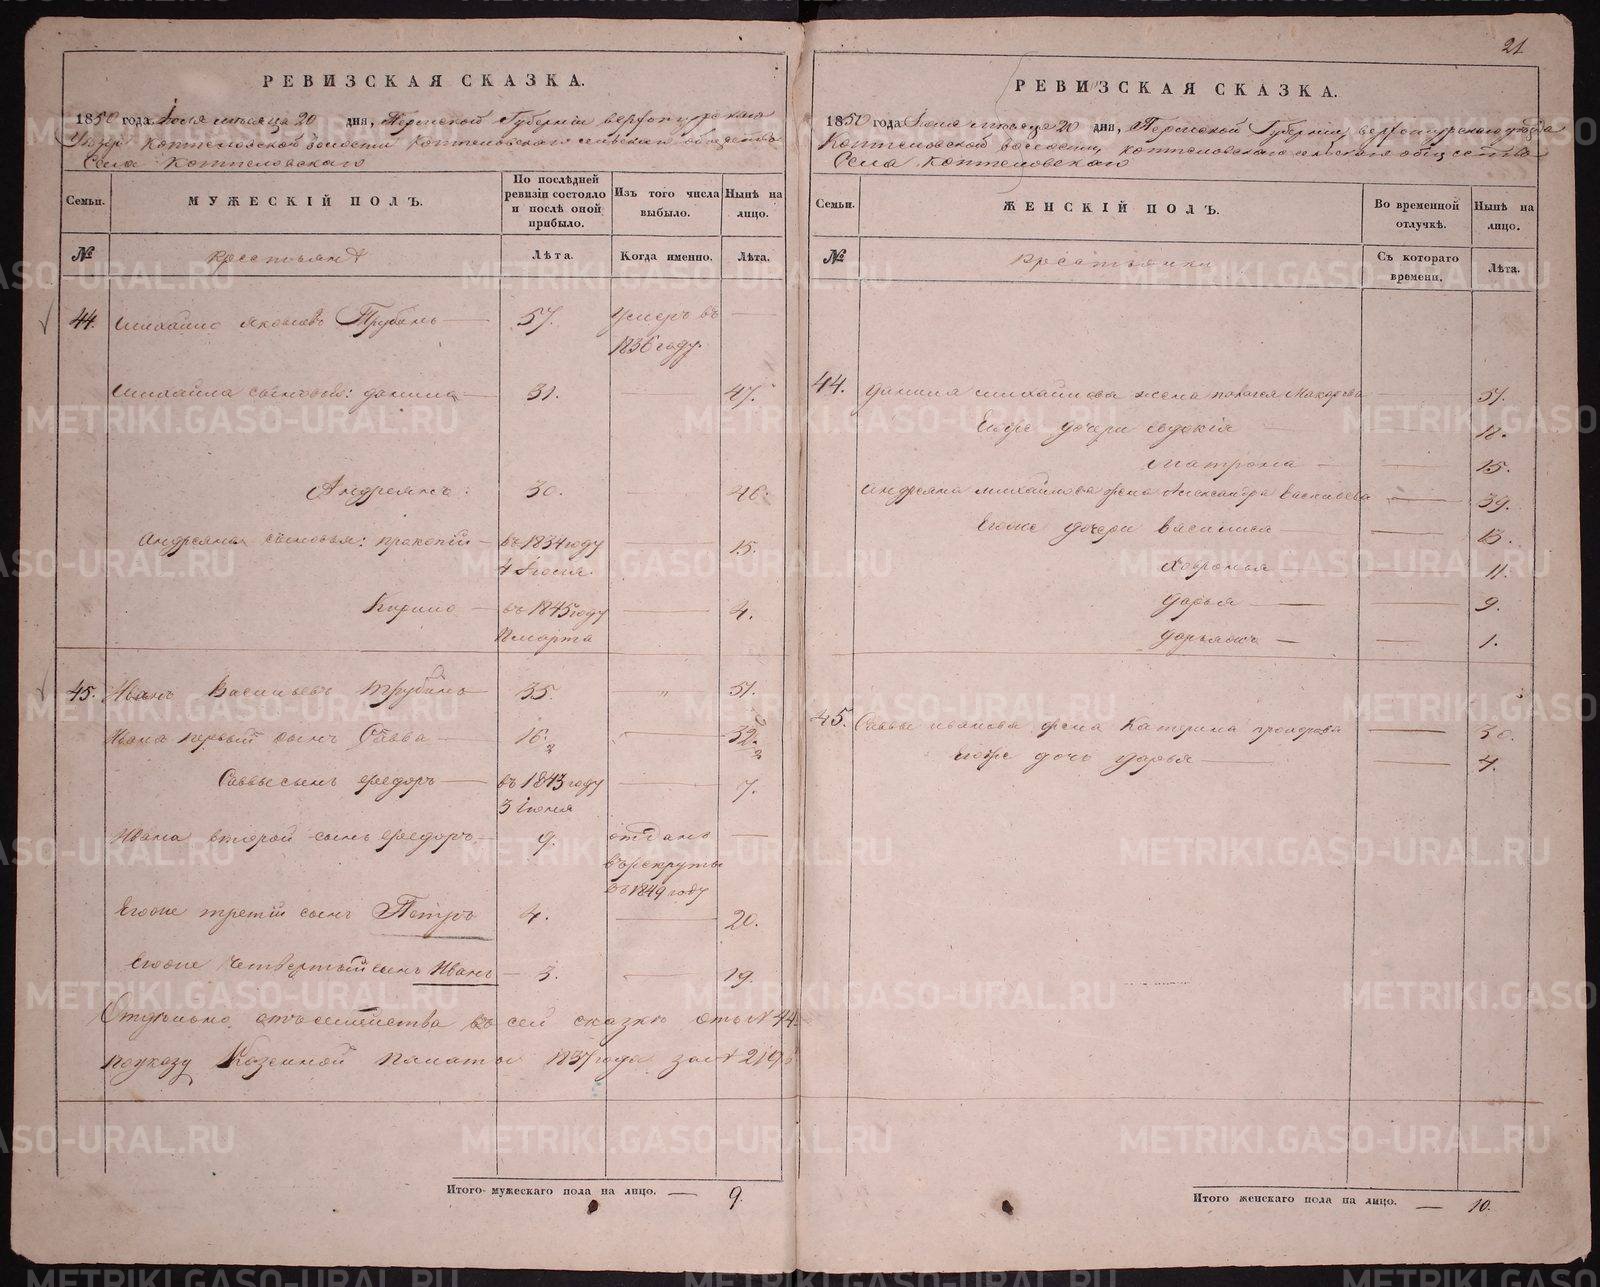 21
РЕВИЗСКАЯ СКАЗКА.
1850 года Июля месяца 20 дня, Пермской Губернiи верхотурскаго
Уезда Коптеловской волости Коптеловскаго сельскаго общества
Села Коптеловскаго
Семьи.
МУЖЕСКIЙ ПОЛЪ.
По послѣдней ревизiи состояло и послѣ оной прибыло.
Изъ того числа выбыло.
Нынѣ на лицо.
№
Крестьянъ
Лѣта.
Когда именно.
Лѣта.
44. Михайло Яковлевъ Трубинъ — 57. Умеръ въ —
1836 году.
Михайла сыновья: Данило — 31. — 47.
Андреянъ: 30. — 46.
Андреяна сыновья: Прокопiй — въ 1834 году — 15.
4 Iюля.
Кирило — въ 1845 году — 4.
марта
45. Иванъ Васильевъ Трубинъ 35. " 51.
Ивана первый сынъ Савва — 16. — 32.
Саввы сынъ Федоръ — въ 1843 году — 7.
3 iюня
Ивана второй сынъ Федоръ — 9. отданъ —
въ рекруты
въ 1849 году
Егоже третiй сынъ Петръ 4. — 20.
Егоже четвертый сынъ Иванъ — 3. — 19.
Отдельно отъ семейства въ сей сказке отъ № 44
по указу Казенной Палаты 1837 года за №
Итого мужескаго пола на лицо. — 9.
РЕВИЗСКАЯ СКАЗКА.
1850 года Июля месяца 20 дня, Пермской Губернiи верхотурскаго уезда
Коптеловской волости Коптеловскаго сельскаго общества
Села Коптеловскаго
Семьи.
ЖЕНСКIЙ ПОЛЪ.
Во временной отлучкѣ.
Нынѣ на лицо.
№
Крестьянки
Съ котораго времени.
Лѣта.
44. Данила Михайлова жена Павлея Макарова — 51.
Егоже дочери Евдокiя — — 18.
Матрона — — 15.
Андреяна Михайлова жена Александра Васильева — 39.
Егоже дочери Василиса — — 13.
Ховронья — 11.
Дарья — — 9.
— — 1.
45. Саввы Иванова жена Катерина Прохорова — 30.
Егоже дочь Дарья — — 4.
Итого женскаго пола на лицо. — 10.
METRIKI.GASO-URAL.RU